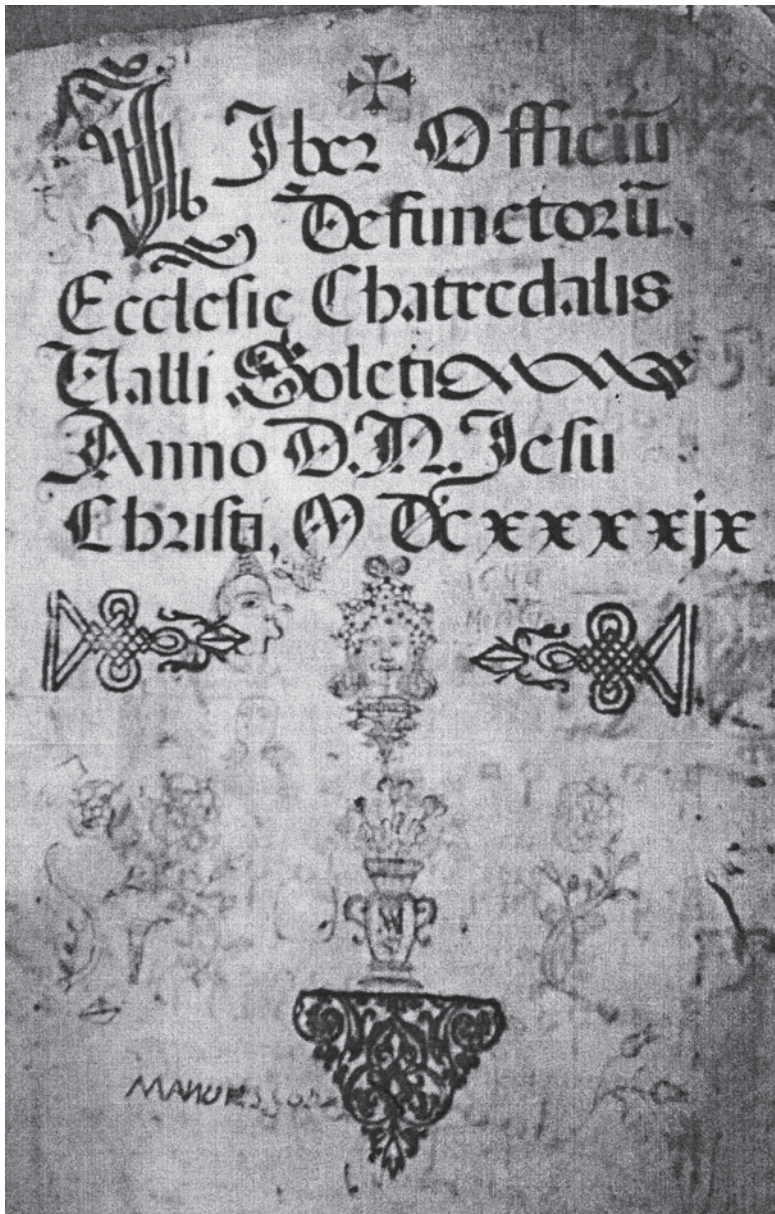 LIber Officiũ
Defunctorũ.
Ecclesie Chatredalis
Valli Soleti
Anno D. N. Iesu
Christi, M Dc xxxxjx
1649